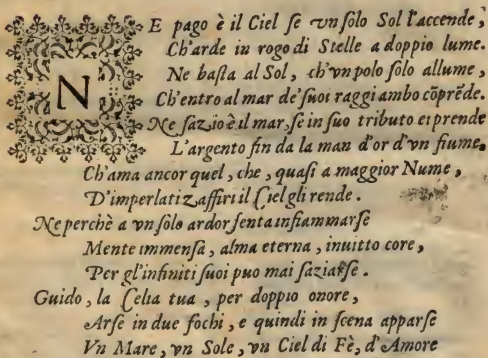 NE pago è il Ciel ſe vn ſolo Sol l'accende,
Ch'arde in rogo di Stelle a doppio lume.
Ne baſta al Sol, ch'vn polo ſolo allume,
Ch'entro al mar de' ſuoi raggi ambo cōprēde.
Ne ſazio è il mar, ſe in ſuo tributo ei prende
L'argento fin da la man d'or d'vn fiume,
Ch'ama ancor quel, che, quaſi a maggior Nume,
D'imperlati zaffiri il Ciel gli rende.
Ne perchè a vn ſolo ardor ſenta infiammarſe
Mente immenſa, alma eterna, inuitto core,
Per gl'infiniti ſuoi puo mai ſaziarſe.
Guido, la Celia tua, per doppio onore,
Arſe in due fochi, e quindi in ſcena apparſe
Vn Mare, vn Sole, vn Ciel di Fè, d'Amore